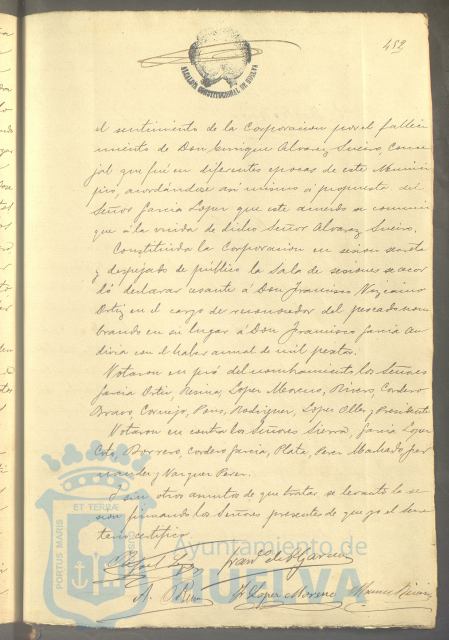 452
ALCALDIA CONSTITUCIONAL DE HUELVA
el sentimiento de la Corporacion por el falleci
miento de Don Enrique Alvarez Sueiro, Conce
jal que fué en diferentes epocas de este Munici
pio, acordándose asi mismo á propuesta del
Señor Garcia Lopez que este acuerdo se comuni
que á la viuda de dicho Señor Alvarez Sueiro.
Constituida la Corporacion en sesion secreta
y despejado de público la Sala de sesiones se acor
dó declarar cesante á Don Francisco Vizcaino
Ortiz en el cargo de reconocedor del pescado nom
brando en su lugar á Don Francisco Garcia
con el haber anual de mil pesetas.
Votaron en pró del nombramiento los Señores
Garcia Ortiz, Resina, Lopez Moreno, Rivero, Cordero
Bravo, Cornejo, Pons, Rodriguez, Lopez Olla y Presidente
Votaron en contra los Señores Sierra, Garcia Lopez
Coto, Borrero, Cordero Garcia, Plata, Perez Machado, Fer
nandez y Vazquez Perez.
Y sin otros asuntos de que tratar se levantó la se
sion firmando los Señores presentes de que yo el Secre
tario certifico.
Rafael Franco de P Garcia
Fr Lopez Moreno
PORTUS MARIS ET TERRAE
Ayuntamiento de
HUELVA